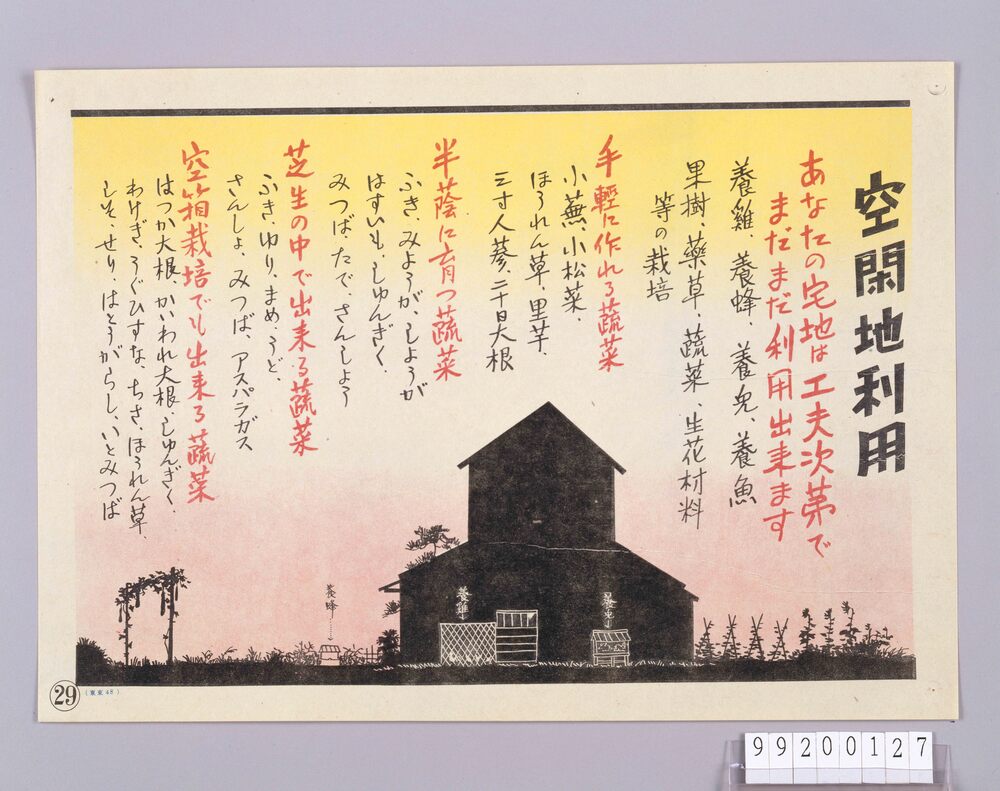 空閑地利用
あなたの宅地は工夫次第で
まだまだ利用出来ます
養雞、養蜂、養兎、養魚
果樹、藥草、蔬菜、生花材料
等の栽培
手軽に作れる蔬菜
小蕪、小松菜、
ほうれん草、里芋、
三寸人蔘、二十日大根
半蔭に育つ蔬菜
ふき、みようが、しようが
はすいも、しゆんぎく、
みつば、たで、さんしよう
芝生の中で出来る蔬菜
ふき、ゆり、まめ、うど、
さんしよ、みつば、アスパラガス
空箱栽培でも出来る蔬菜
はつか大根、かいわれ大根、しゆんぎく、
わけぎ、うぐひすな、ちさ、ほうれん草、
しそ、せり、はとうがらし、いとみつば
養蜂
養雞
養兎
29
（東京48）
99200127